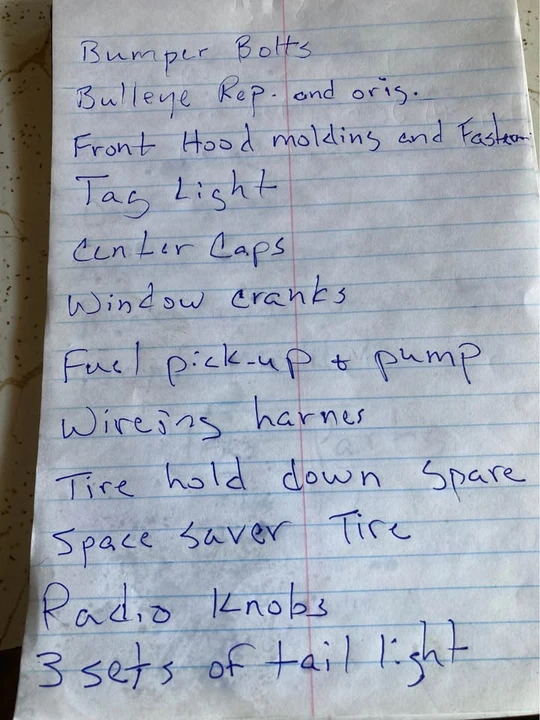 Bumper Bolts
Bulleye Rep. and orig.
Front Hood molding and
Tag Light
Center Caps
Window cranks
Fuel pick-up + pump
Wireing harnes
Tire hold down Spare
Space Saver Tire
Radio Knobs
3 sets of tail light